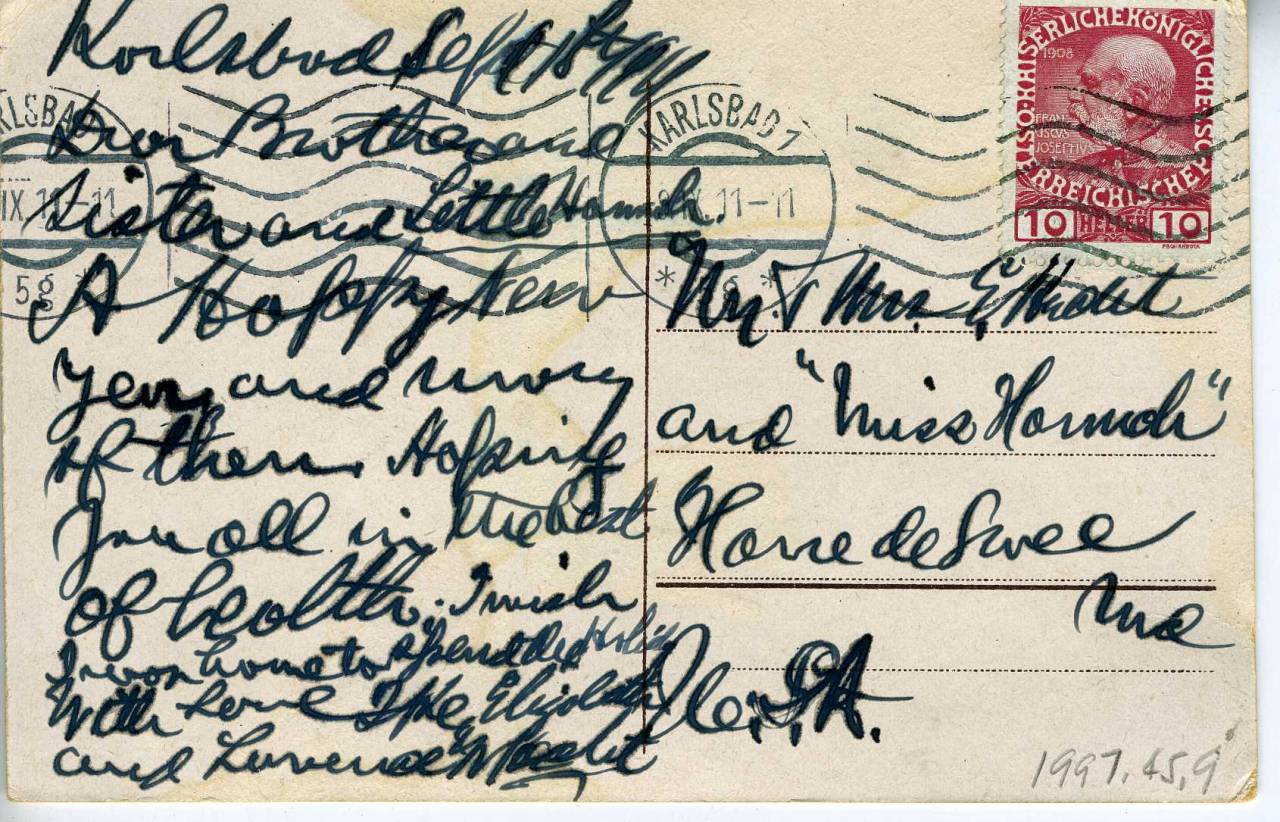 Karlsbad Sept 18th 1911
Dear Brother and
Sister and Little Hannah.
A Happy New
Year and many
of them. Hoping
You all in the best
of health. I wish
I was home to spend the Holiday
With Love Ike, Elizabeth
and Lawrence
KARLSBAD
IX 11-11
5g
KARLSBAD 1
IX 11-11
* g *
KAISERLICHE KÖNIGLICHE ÖSTERREICHISCHE POST
1908
FRAN
CISCVS
JOSEPHVS
10 HELLER 10
Mr. & Mrs. E.
and "Miss Hannah"
Havre de Grace
Md
U.S.A.
1997.45.9